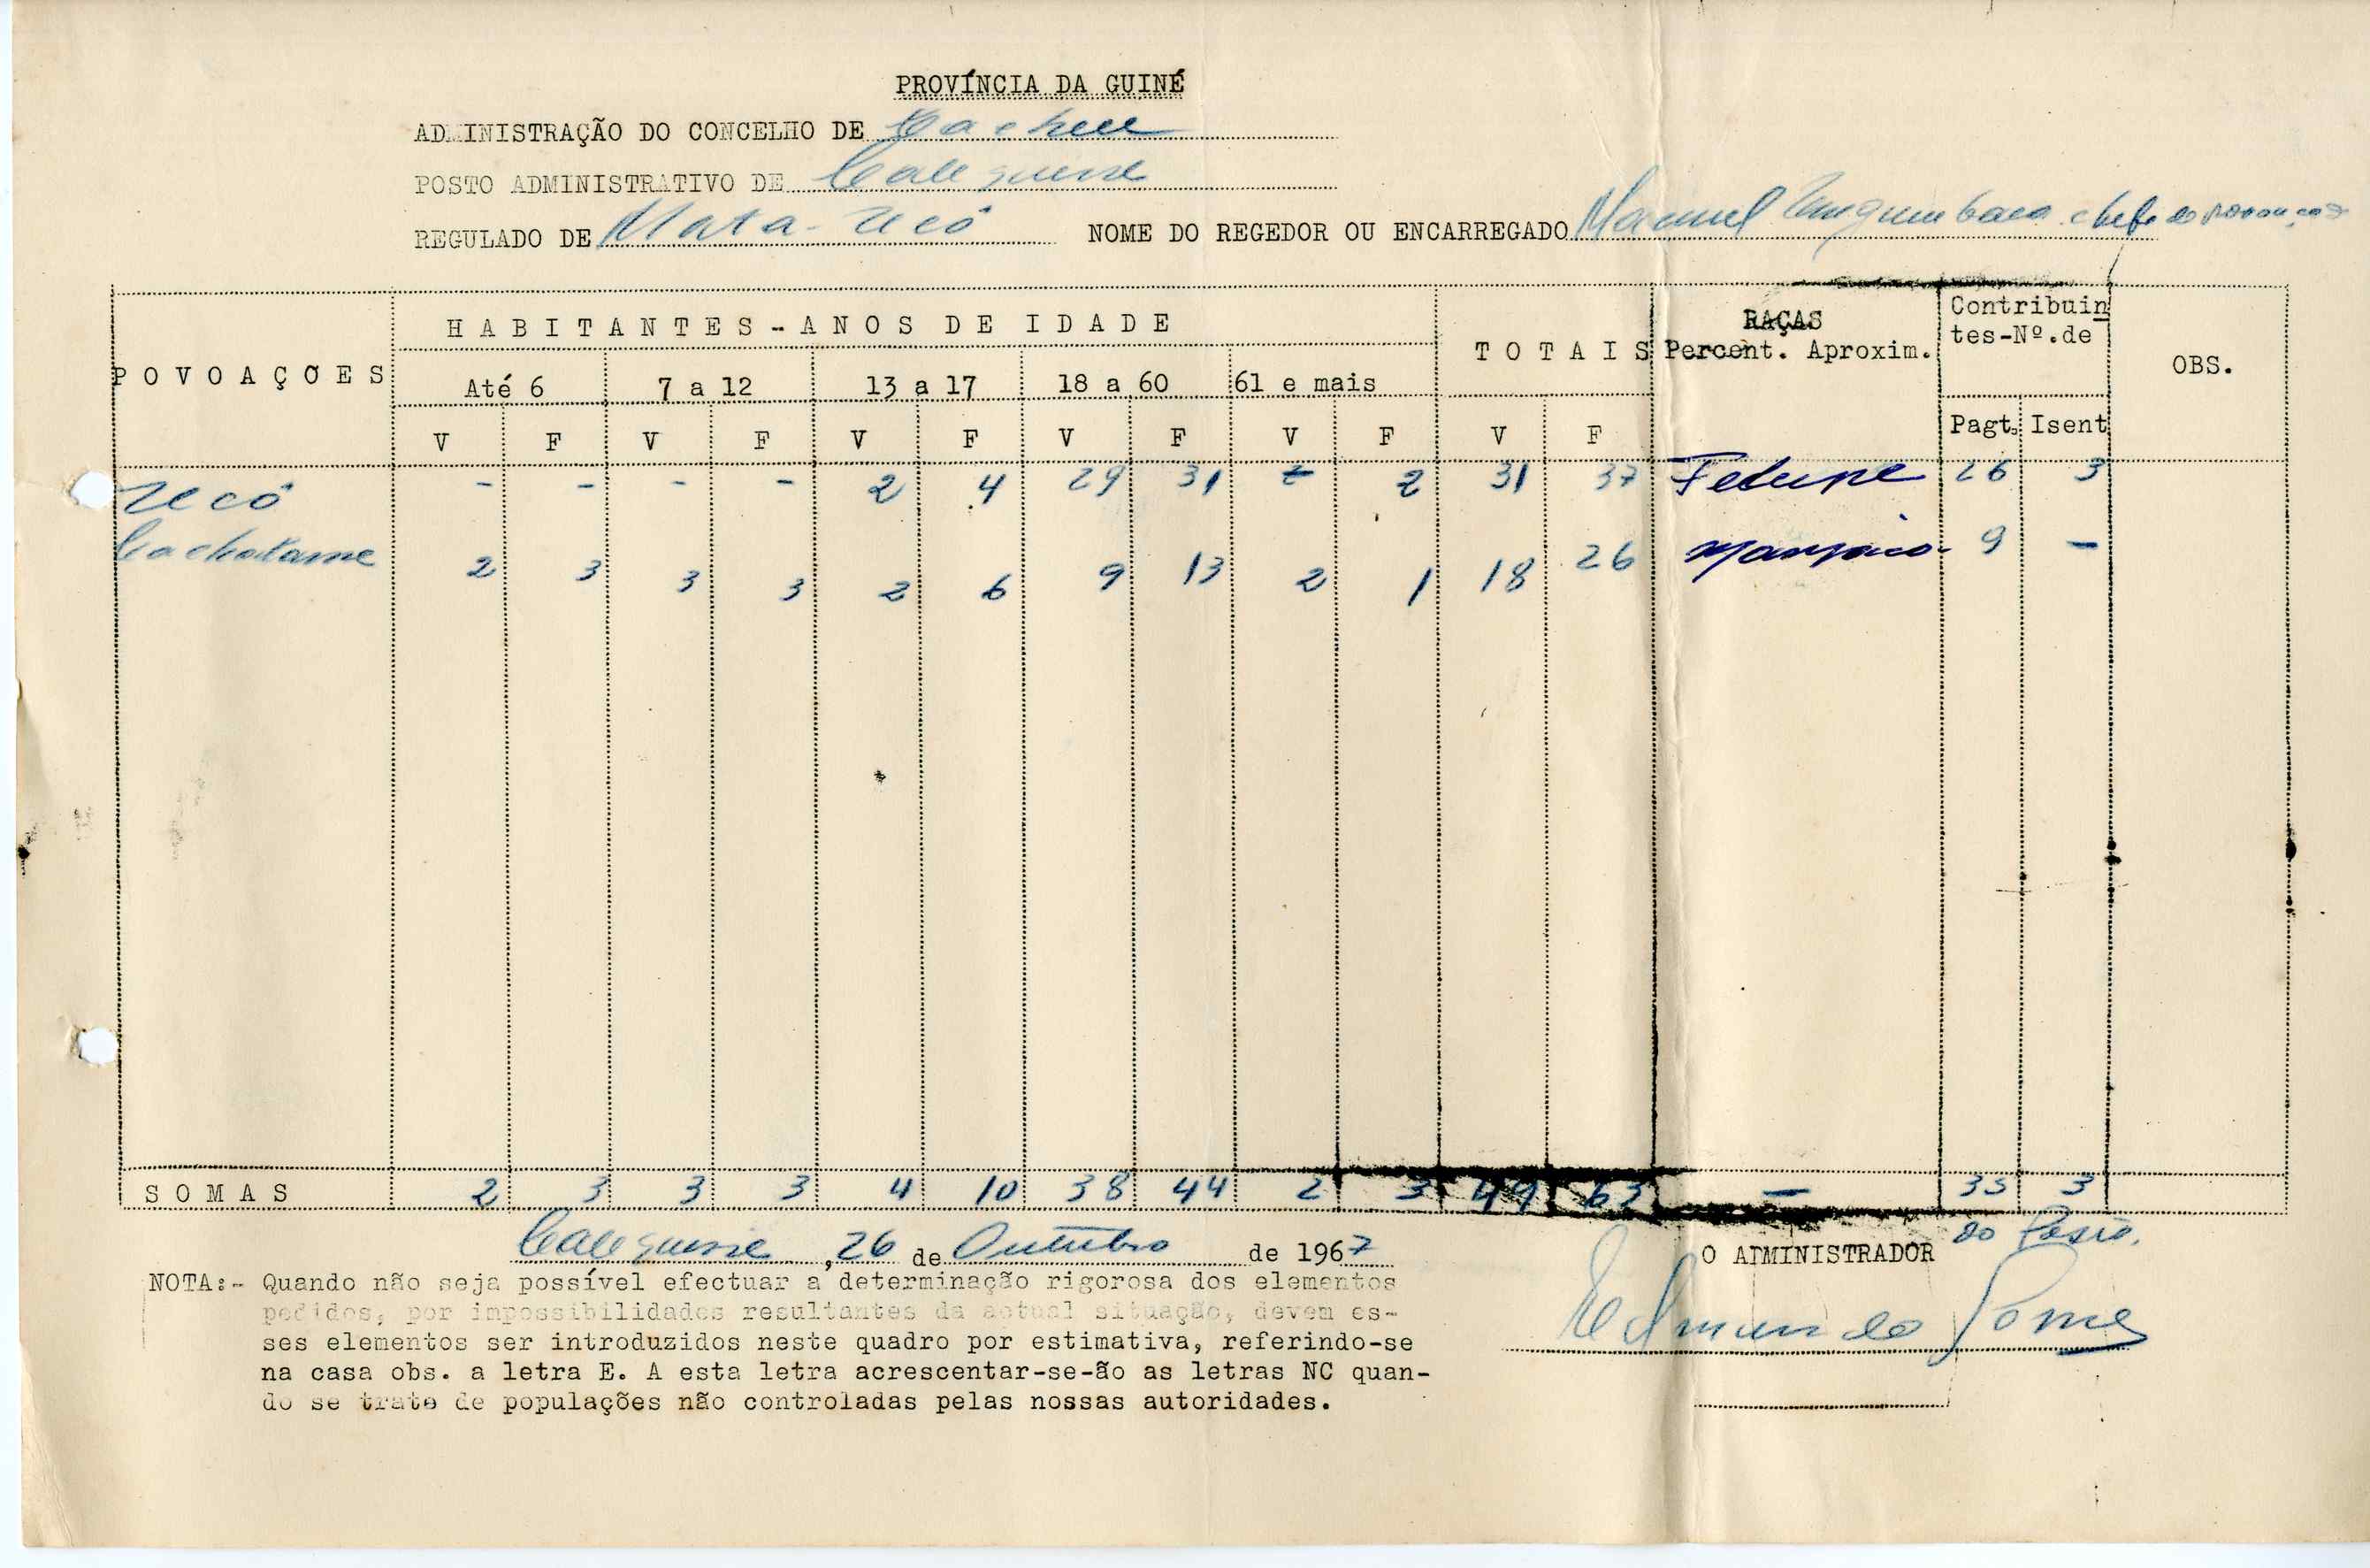 PROVÍNCIA DA GUINÉ
ADMINISTRAÇÃO DO CONCELHO DE Cacheu
POSTO ADMINISTRATIVO DE Calequisse
REGULADO DE Mata-Ucô NOME DO REGEDOR OU ENCARREGADO Manuel chefe da povoação
POVOAÇÕES HABITANTES-ANOS DE IDADE TOTAIS RAÇAS Percent. Aproxim. Contribuin tes-Nº.de OBS.
Até 6 7 a 12 13 a 17 18 a 60 61 e mais
V F V F V F V F V F V F Pagt. Isent
Ucô - - - - 2 4 29 31 - 2 31 37 Felupe 26 3
Cachatame 2 3 3 3 2 6 9 13 2 1 18 26 Manjaco 9 -
SOMAS 2 3 3 3 4 10 38 44 2 3 49 63 - 35 3
Calequisse, 26 de Outubro de 1967
O ADMINISTRADOR do Posto,
NOTA:- Quando não seja possível efectuar a determinação rigorosa dos elementos
pedidos, por impossibilidades resultantes da actual situação, devem es-
ses elementos ser introduzidos neste quadro por estimativa, referindo-se
na casa obs. a letra E. A esta letra acrescentar-se-ão as letras NC quan-
do se trate de populações não controladas pelas nossas autoridades.
Edmundo Gomes